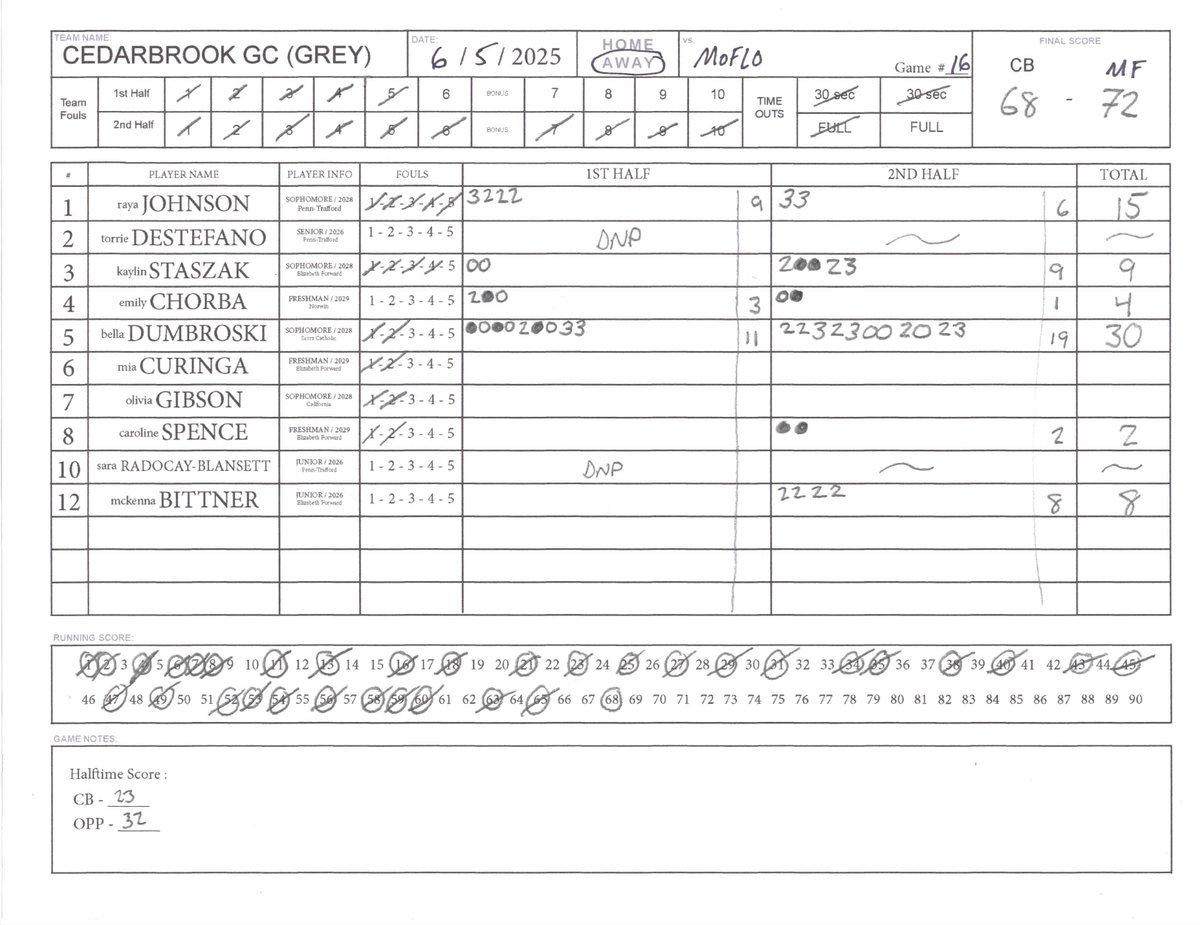 TEAM NAME: DATE: HOME VS. FINAL SCORE
CEDARBROOK GC (GREY) 6 / 5 / 2025 AWAY MOFLO Game # 16 CB MF
68 - 72
Team Fouls 1st Half 1 2 3 4 5 6 BONUS 7 8 9 10 TIME OUTS 30 sec 30 sec
2nd Half 1 2 3 4 5 6 BONUS 7 8 9 10 FULL FULL
# PLAYER NAME PLAYER INFO FOULS 1ST HALF 2ND HALF TOTAL
1 raya JOHNSON SOPHOMORE / 2028 Penn-Trafford 1-2-3-4-5 3222 9 33 6 15
2 torrie DESTEFANO SENIOR / 2026 Penn-Trafford 1 - 2 - 3 - 4 - 5 DNP
3 kaylin STASZAK SOPHOMORE / 2028 Elizabeth Forward 1-2-3-4-5 00 20023 9 9
4 emily CHORBA FRESHMAN / 2029 Norwin 1 - 2 - 3 - 4 - 5 200 3 00 1 4
5 bella DUMBROSKI SOPHOMORE / 2028 Serra Catholic 1-2-3 - 4 - 5 000020033 11 223230020 23 19 30
6 mia CURINGA FRESHMAN / 2029 Elizabeth Forward 1-2-3 - 4 - 5
7 olivia GIBSON SOPHOMORE / 2028 California 1-2-3 - 4 - 5
8 caroline SPENCE FRESHMAN / 2029 Elizabeth Forward 1-2-3 - 4 - 5 00 2 2
10 sara RADOCAY-BLANSETT JUNIOR / 2026 Penn-Trafford 1 - 2 - 3 - 4 - 5 DNP
12 mckenna BITTNER JUNIOR / 2026 Elizabeth Forward 1 - 2 - 3 - 4 - 5 2222 8 8
RUNNING SCORE:
1 2 3 4 5 6 7 8 9 10 11 12 13 14 15 16 17 18 19 20 21 22 23 24 25 26 27 28 29 30 31 32 33 34 35 36 37 38 39 40 41 42 43 44 45
46 47 48 49 50 51 52 53 54 55 56 57 58 59 60 61 62 63 64 65 66 67 68 69 70 71 72 73 74 75 76 77 78 79 80 81 82 83 84 85 86 87 88 89 90
GAME NOTES:
Halftime Score :
CB - 23
OPP - 32